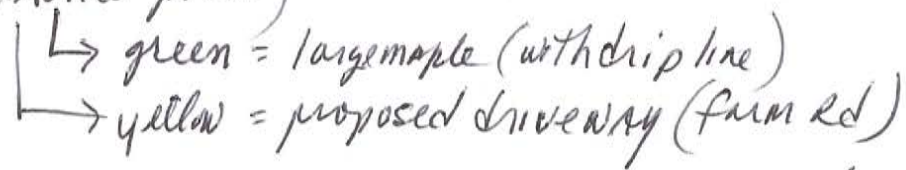 ↳ green = large maple (with drip line)
→ yellow = proposed driveway (farm Rd)